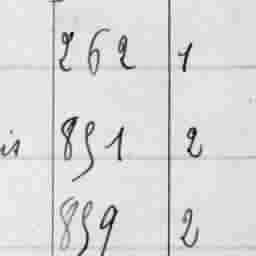 262 1
is 851 2
859 2